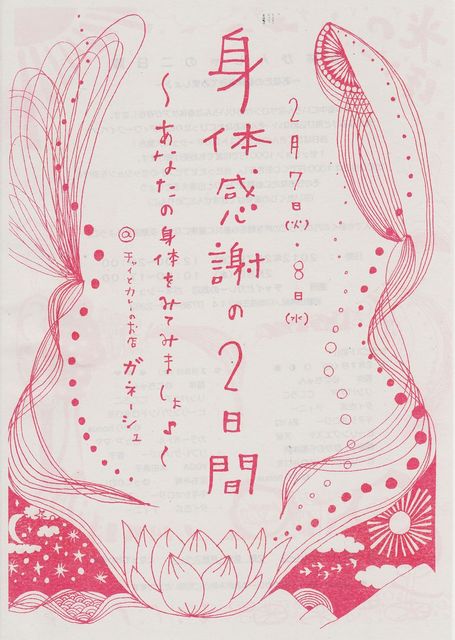 2月7日(火)・8日(水)
身体感謝の2日間
〜あなたの身体をみてみましょ♪〜
@チャイとカレーのお店 ガネーシュ